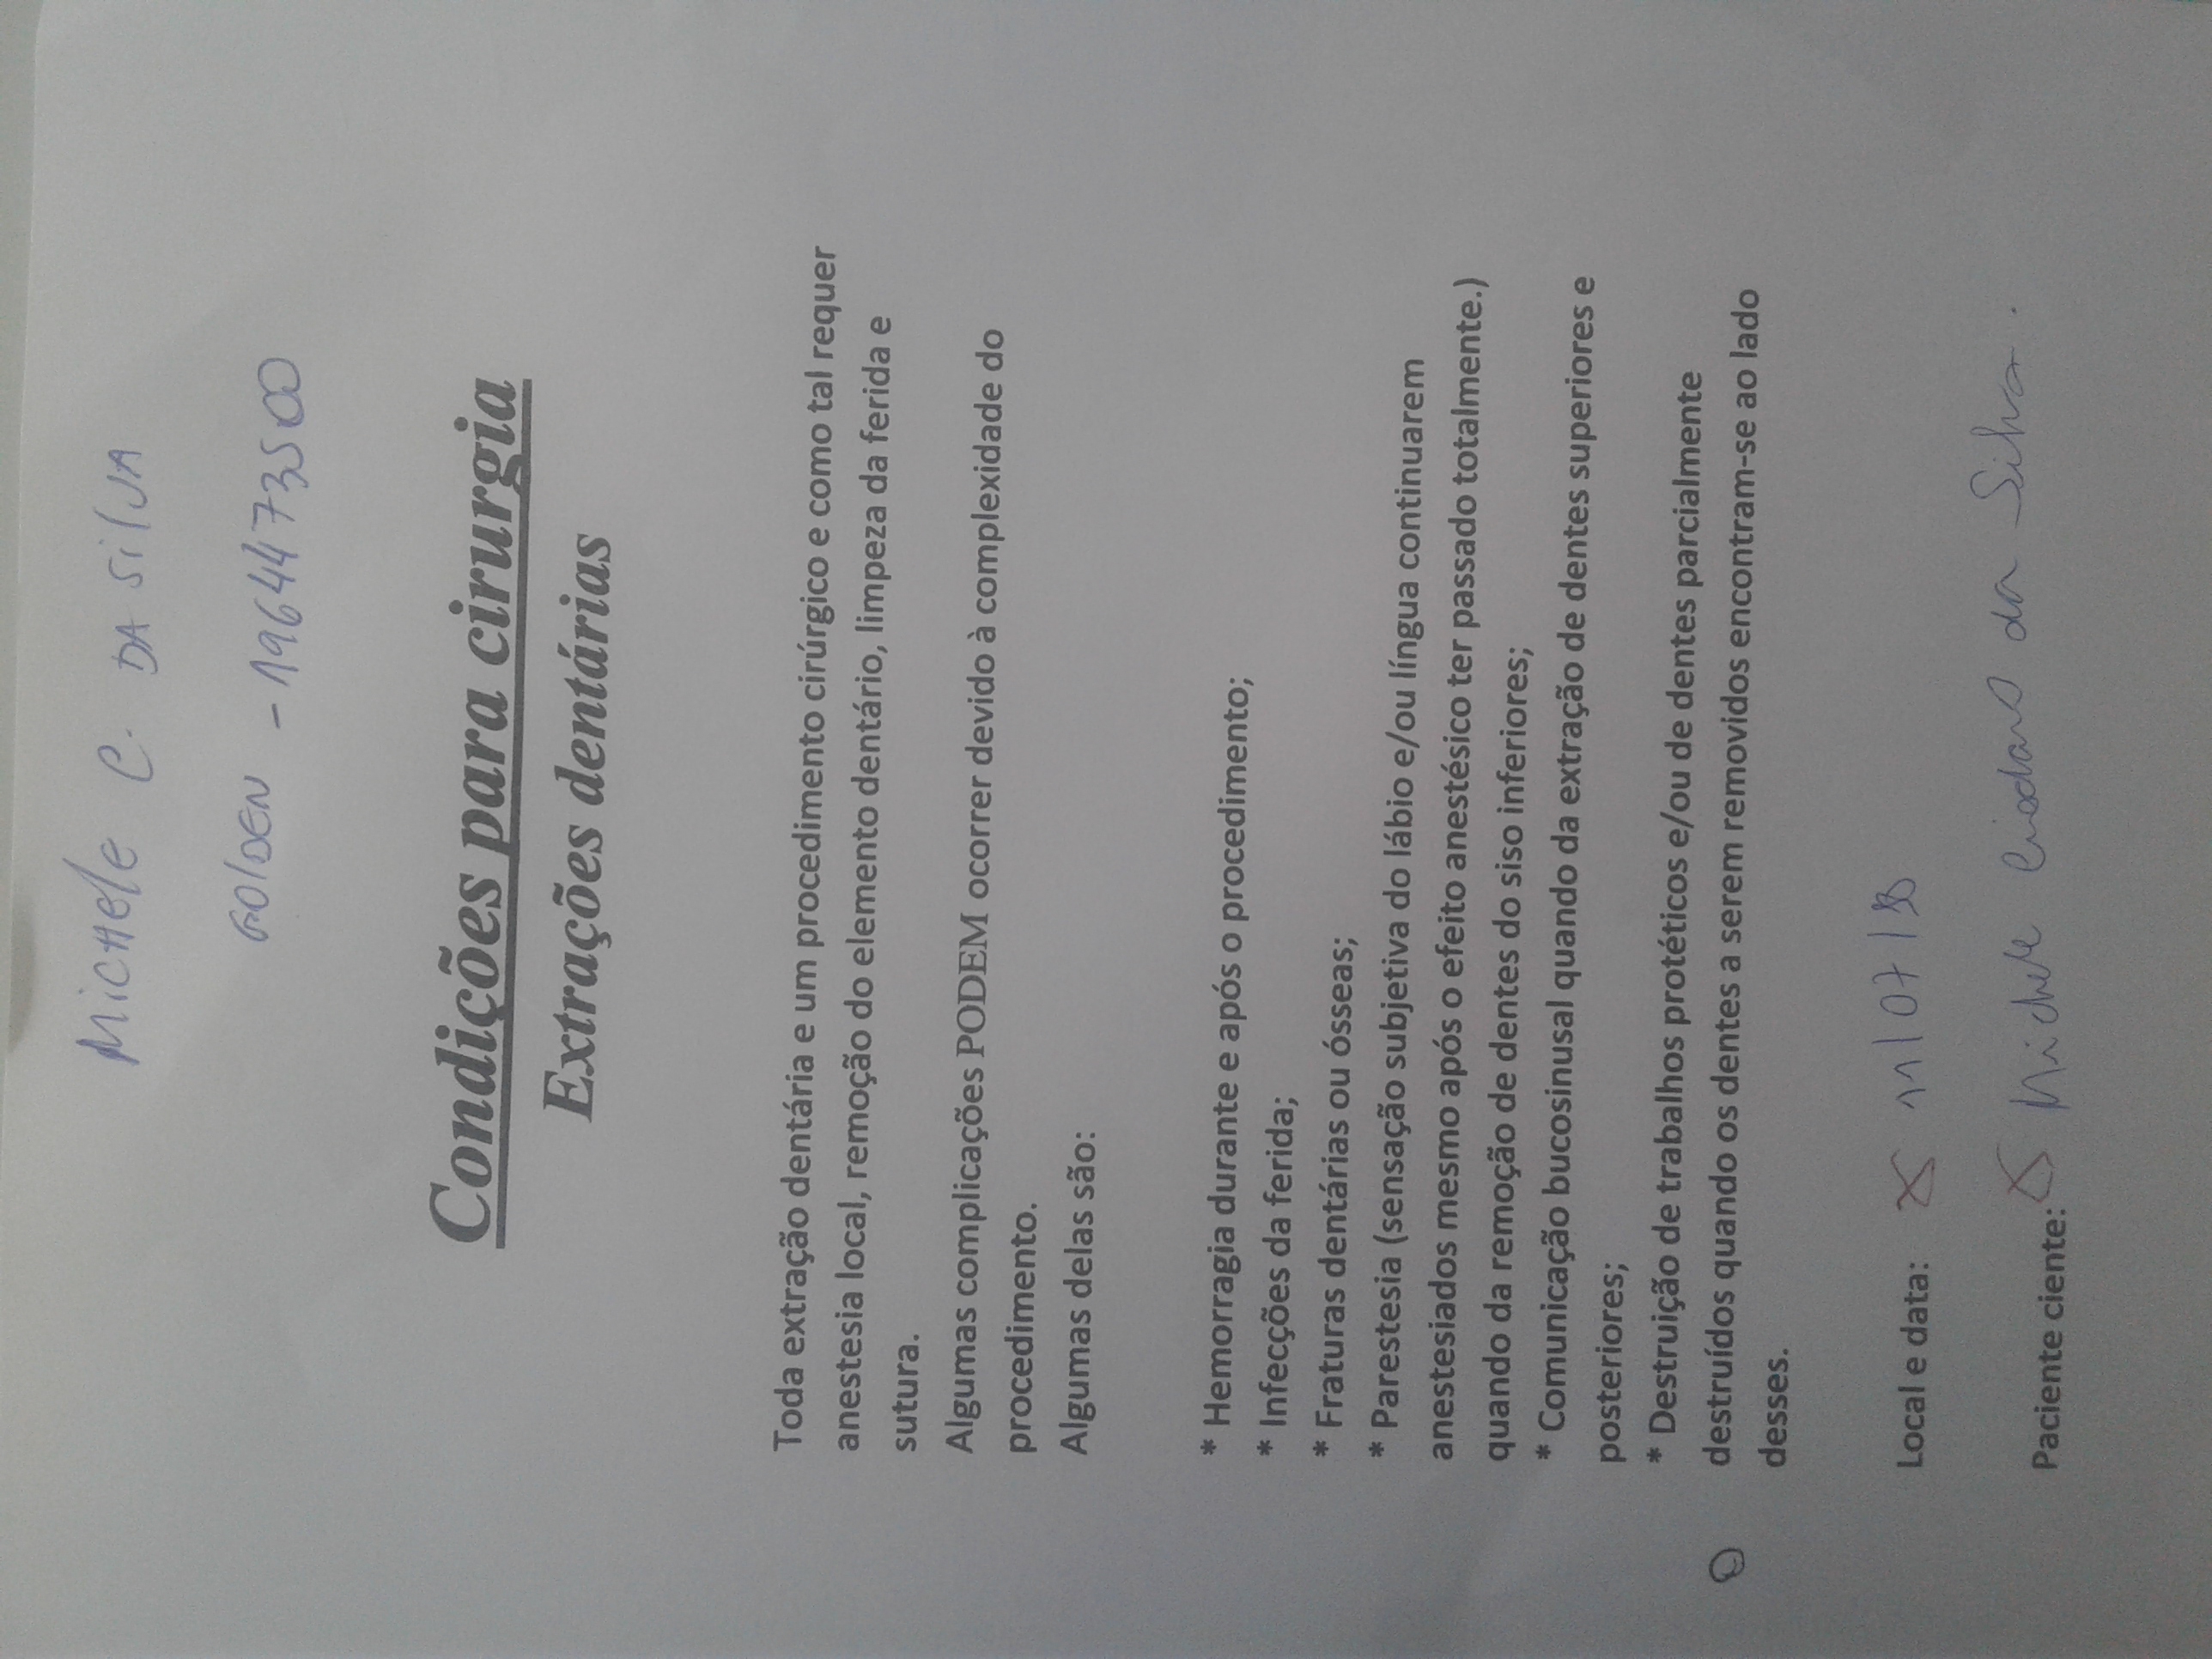 MICHELE C. DA SILVA
GOLDEN - 1964473500
Condições para cirurgia
Extrações dentárias
Toda extração dentária e um procedimento cirúrgico e como tal requer
anestesia local, remoção do elemento dentário, limpeza da ferida e
sutura.
Algumas complicações PODEM ocorrer devido à complexidade do
procedimento.
Algumas delas são:
* Hemorragia durante e após o procedimento;
* Infecções da ferida;
* Fraturas dentárias ou ósseas;
* Parestesia (sensação subjetiva do lábio e/ou língua continuarem
anestesiados mesmo após o efeito anestésico ter passado totalmente.)
quando da remoção de dentes do siso inferiores;
* Comunicação bucosinusal quando da extração de dentes superiores e
posteriores;
* Destruição de trabalhos protéticos e/ou de dentes parcialmente
destruídos quando os dentes a serem removidos encontram-se ao lado
desses.
Local e data: X 11/07/
Paciente ciente: X Michele da Silva.